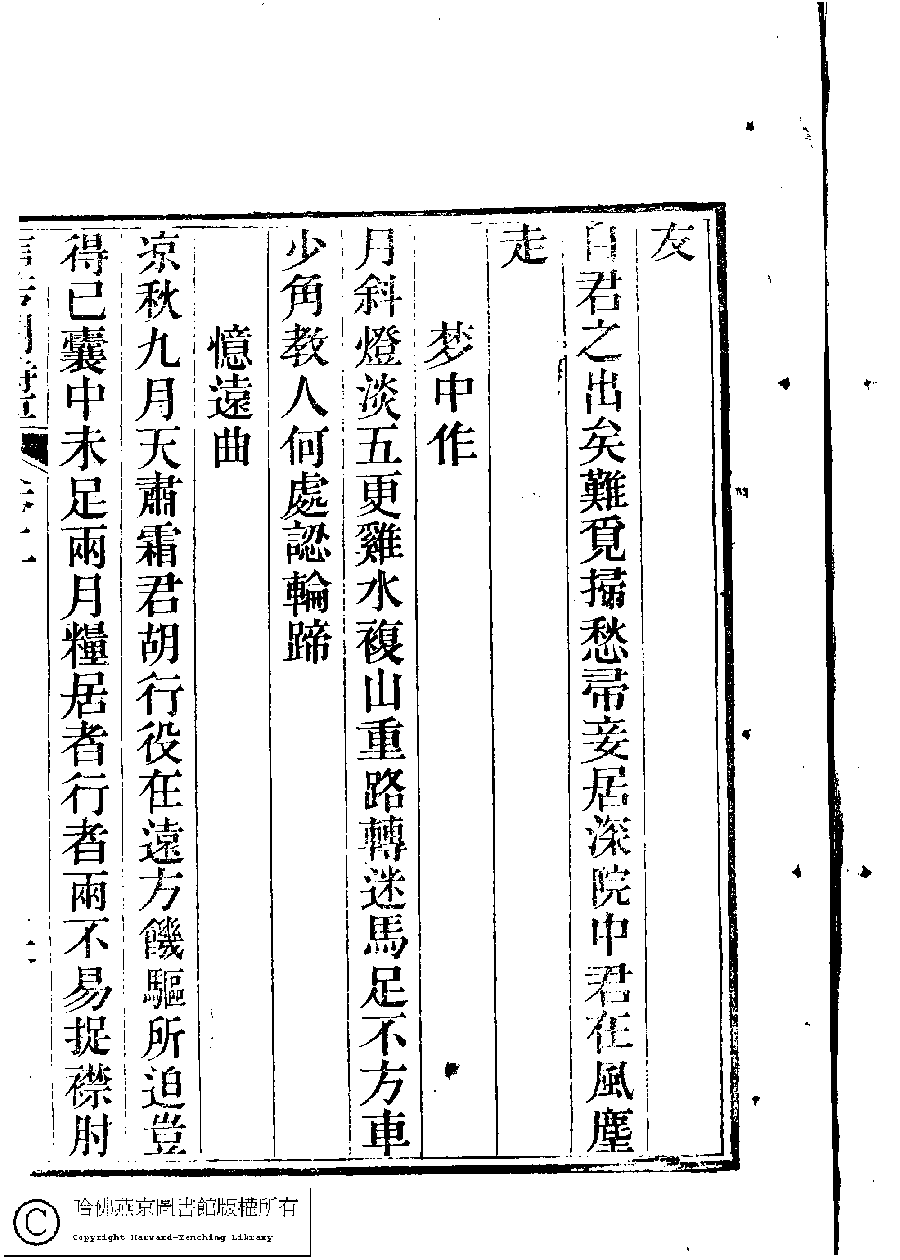 友
自君之出矣難覓掃愁帚妾居深院中君在風塵
走
梦中作
月斜燈淡五更雞水複山重路轉迷馬足不方車
少角教人何處認輪蹄
憶遠曲
凉秋九月天肅霜君胡行役在遠方饑驅所迫豈
得已囊中未足兩月糧居者行者兩不易捉襟肘
哈佛燕京圖書館版權所有
Copyright Harvard-Yenching Library